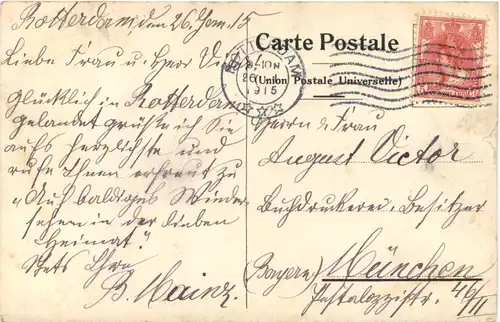 Rotterdam, den 26. Jan. 15
Liebe Frau u. Herr Victor
Glücklich in Rotterdam
gelandet grüße ich Sie
aufs herzlichste und
rufe Ihnen erfreut zu
„Auf baldiges Wieder-
sehen in der lieben
Heimat."
Stets Ihre
B. Mainz.
Carte Postale
(Union Postale Universelle)
ROTTERDAM
1915
Herrn & Frau
August Victor
Buchdruckerei-Besitzer
(Bayern) München
Pestalozzistr. 46/II